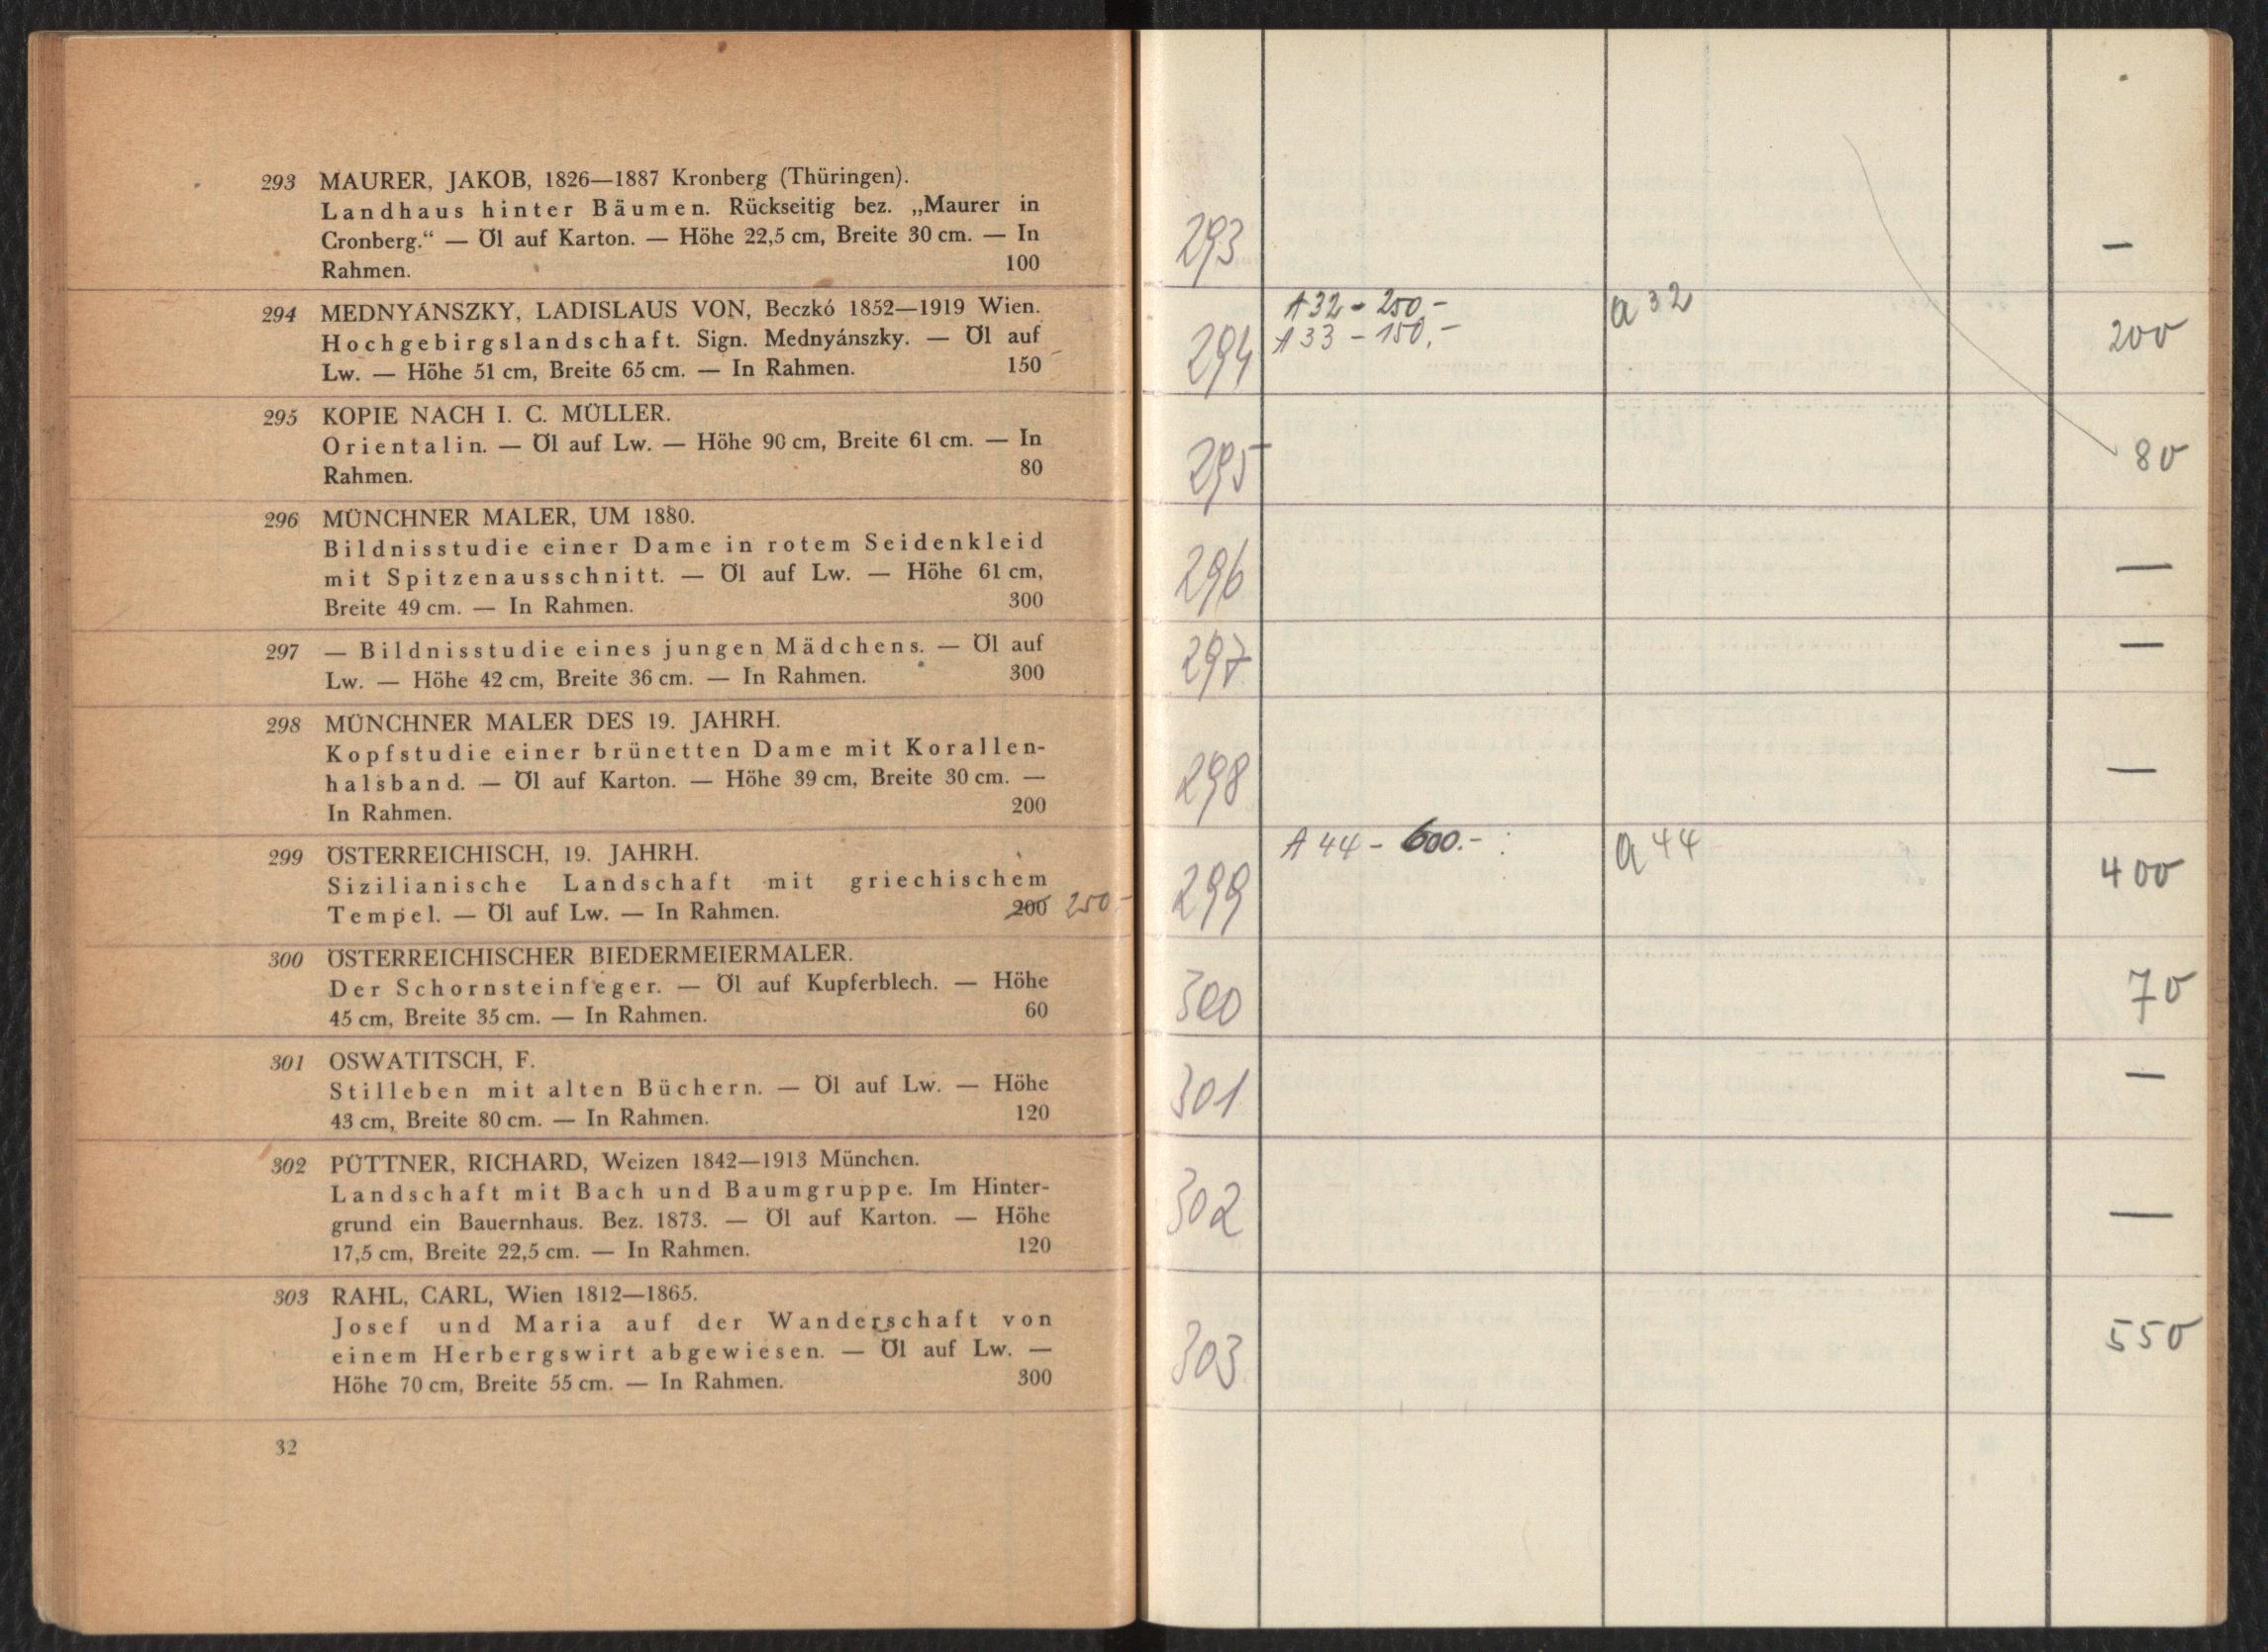 293 MAURER, JAKOB, 1826—1887 Kronberg (Thüringen).
Landhaus hinter Bäumen. Rückseitig bez. „Maurer in
Cronberg.“ — Öl auf Karton. — Höhe 22,5 cm, Breite 30 cm. — In
Rahmen. 100
294 MEDNYÁNSZKY, LADISLAUS VON, Beczkó 1852—1919 Wien.
Hochgebirgslandschaft. Sign. Mednyánszky. — Öl auf
Lw. — Höhe 51 cm, Breite 65 cm. — In Rahmen. 150
295 KOPIE NACH I. C. MÜLLER.
Orientalin. — Öl auf Lw. — Höhe 90 cm, Breite 61 cm. — In
Rahmen. 80
296 MÜNCHNER MALER, UM 1880.
Bildnisstudie einer Dame in rotem Seidenkleid
mit Spitzenausschnitt. — Öl auf Lw. — Höhe 61 cm,
Breite 49 cm. — In Rahmen. 300
297 — Bildnisstudie eines jungen Mädchens. — Öl auf
Lw. — Höhe 42 cm, Breite 36 cm. — In Rahmen. 300
298 MÜNCHNER MALER DES 19. JAHRH.
Kopfstudie einer brünetten Dame mit Korallen-
halsband. — Öl auf Karton. — Höhe 39 cm, Breite 30 cm. —
In Rahmen. 200
299 ÖSTERREICHISCH, 19. JAHRH.
Sizilianische Landschaft mit griechischem
Tempel. — Öl auf Lw. — In Rahmen. 200 250-
300 ÖSTERREICHISCHER BIEDERMEIERMALER.
Der Schornsteinfeger. — Öl auf Kupferblech. — Höhe
45 cm, Breite 35 cm. — In Rahmen. 60
301 OSWATITSCH, F.
Stilleben mit alten Büchern. — Öl auf Lw. — Höhe
43 cm, Breite 80 cm. — In Rahmen. 120
302 PÜTTNER, RICHARD, Weizen 1842—1913 München.
Landschaft mit Bach und Baumgruppe. Im Hinter-
grund ein Bauernhaus. Bez. 1873. — Öl auf Karton. — Höhe
17,5 cm, Breite 22,5 cm. — In Rahmen. 120
303 RAHL, CARL, Wien 1812—1865.
Josef und Maria auf der Wanderschaft von
einem Herbergswirt abgewiesen. — Öl auf Lw. —
Höhe 70 cm, Breite 55 cm. — In Rahmen. 300
32
293 —
A 32 - 250.- a 32
294 A 33 - 150.- 200
295 80
296 —
297 —
298 —
A 44 - 600.- a 44
299 400
300 70
301 —
302 —
303 550